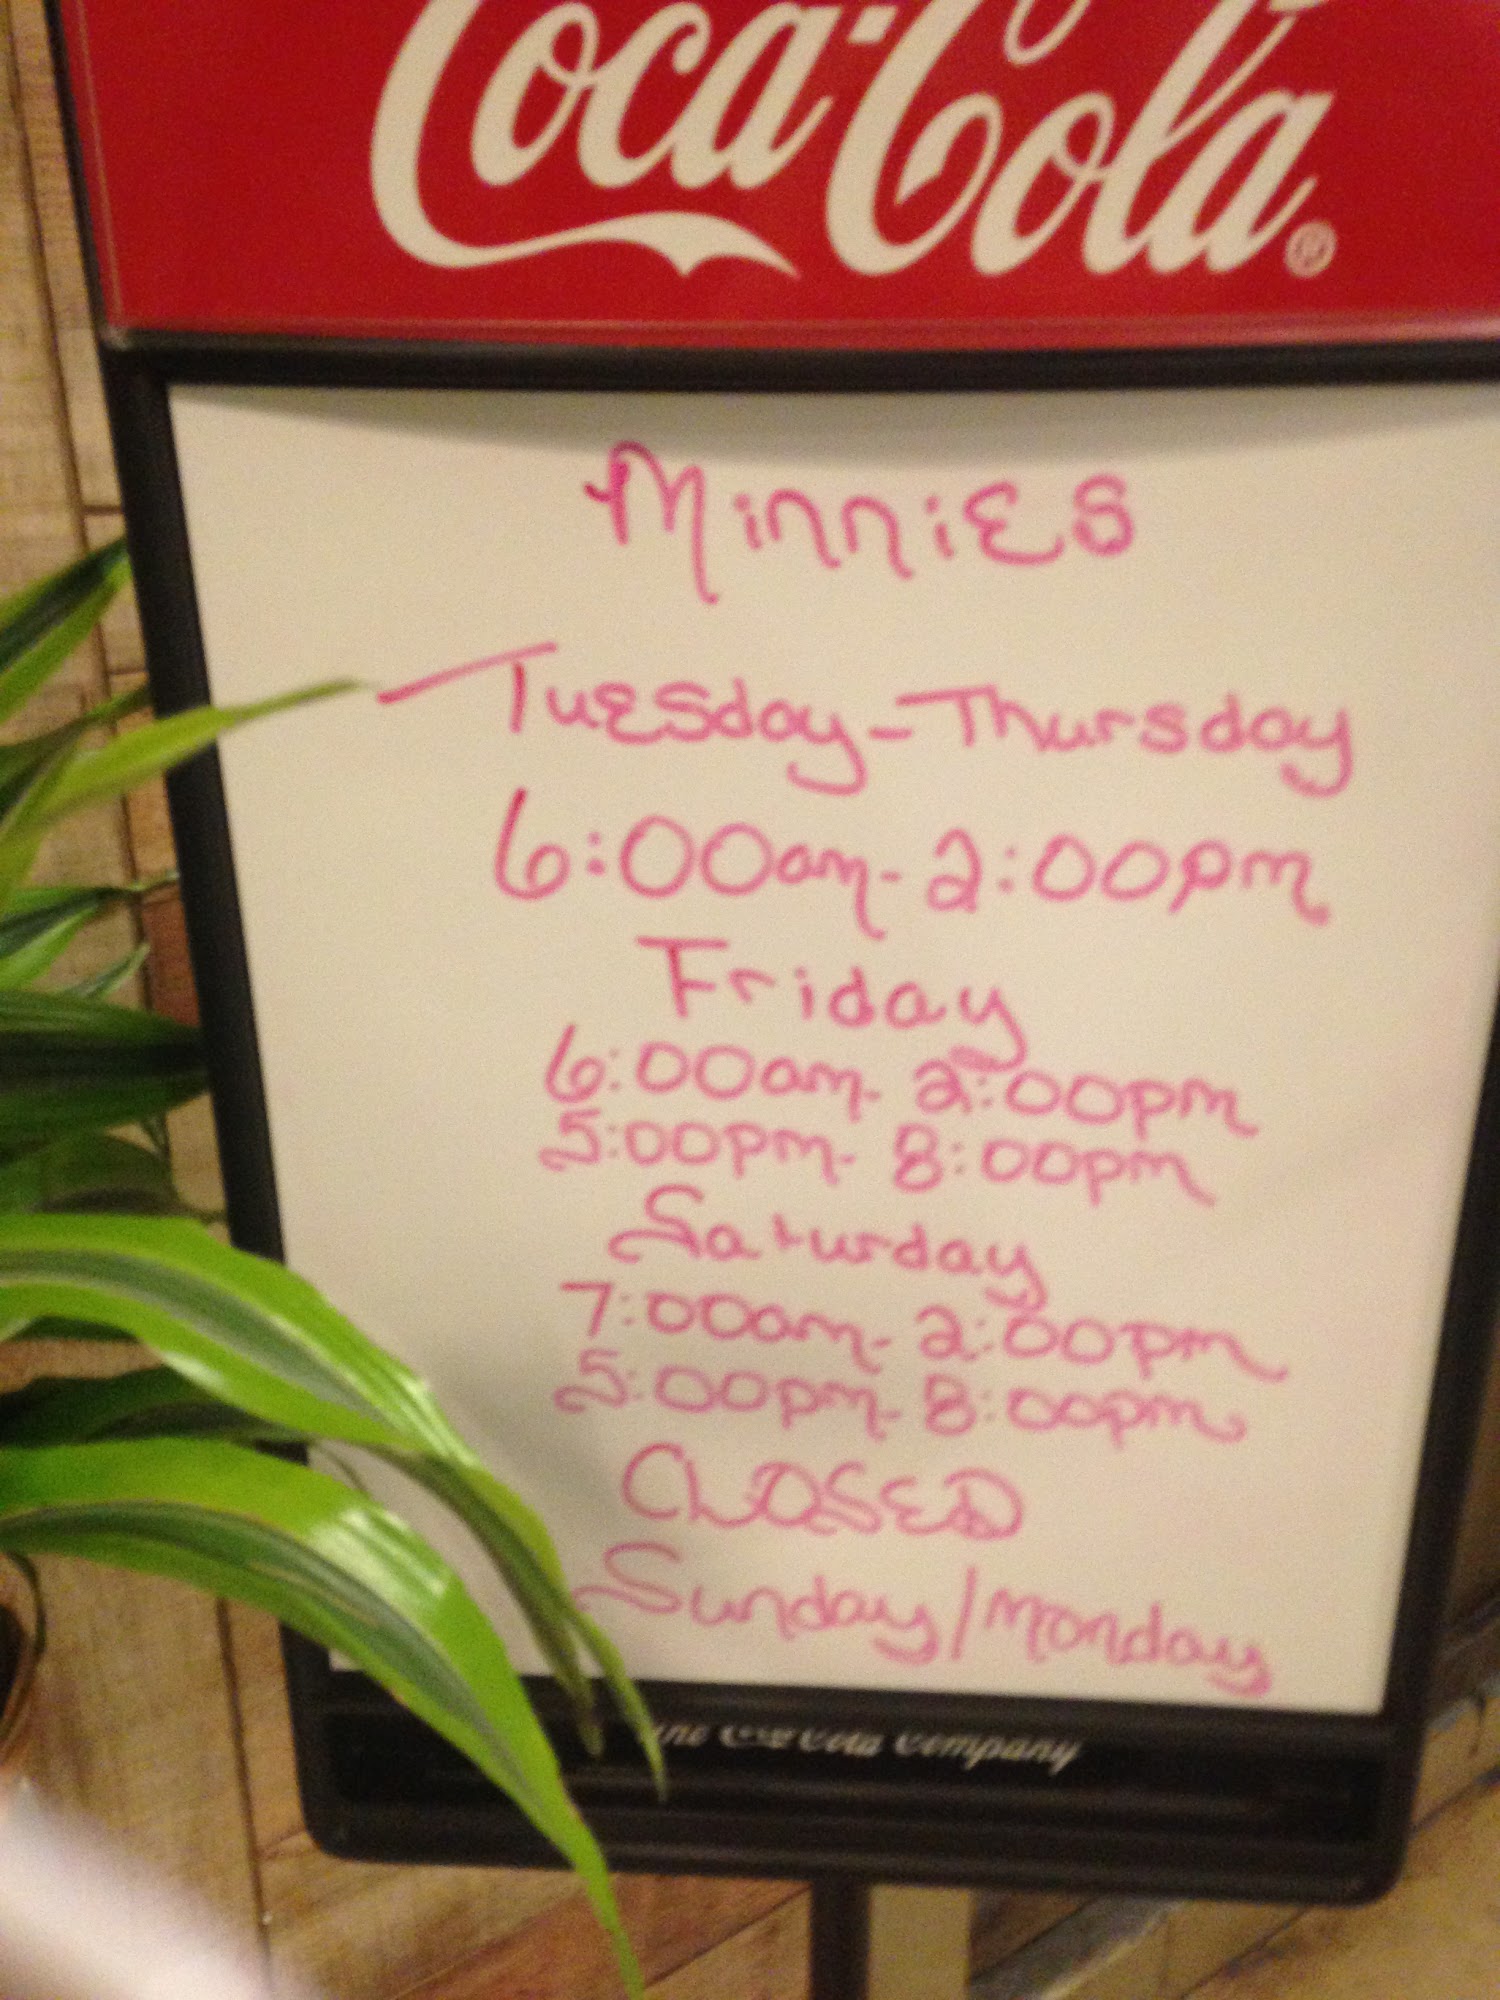 Coca-Cola®
Minnies
Tuesday-Thursday
6:00am-2:00pm
Friday
6:00am-2:00pm
5:00pm-8:00pm
Saturday
7:00am-2:00pm
5:00pm-8:00pm
CLOSED
Sunday/Monday
The Coca-Cola Company